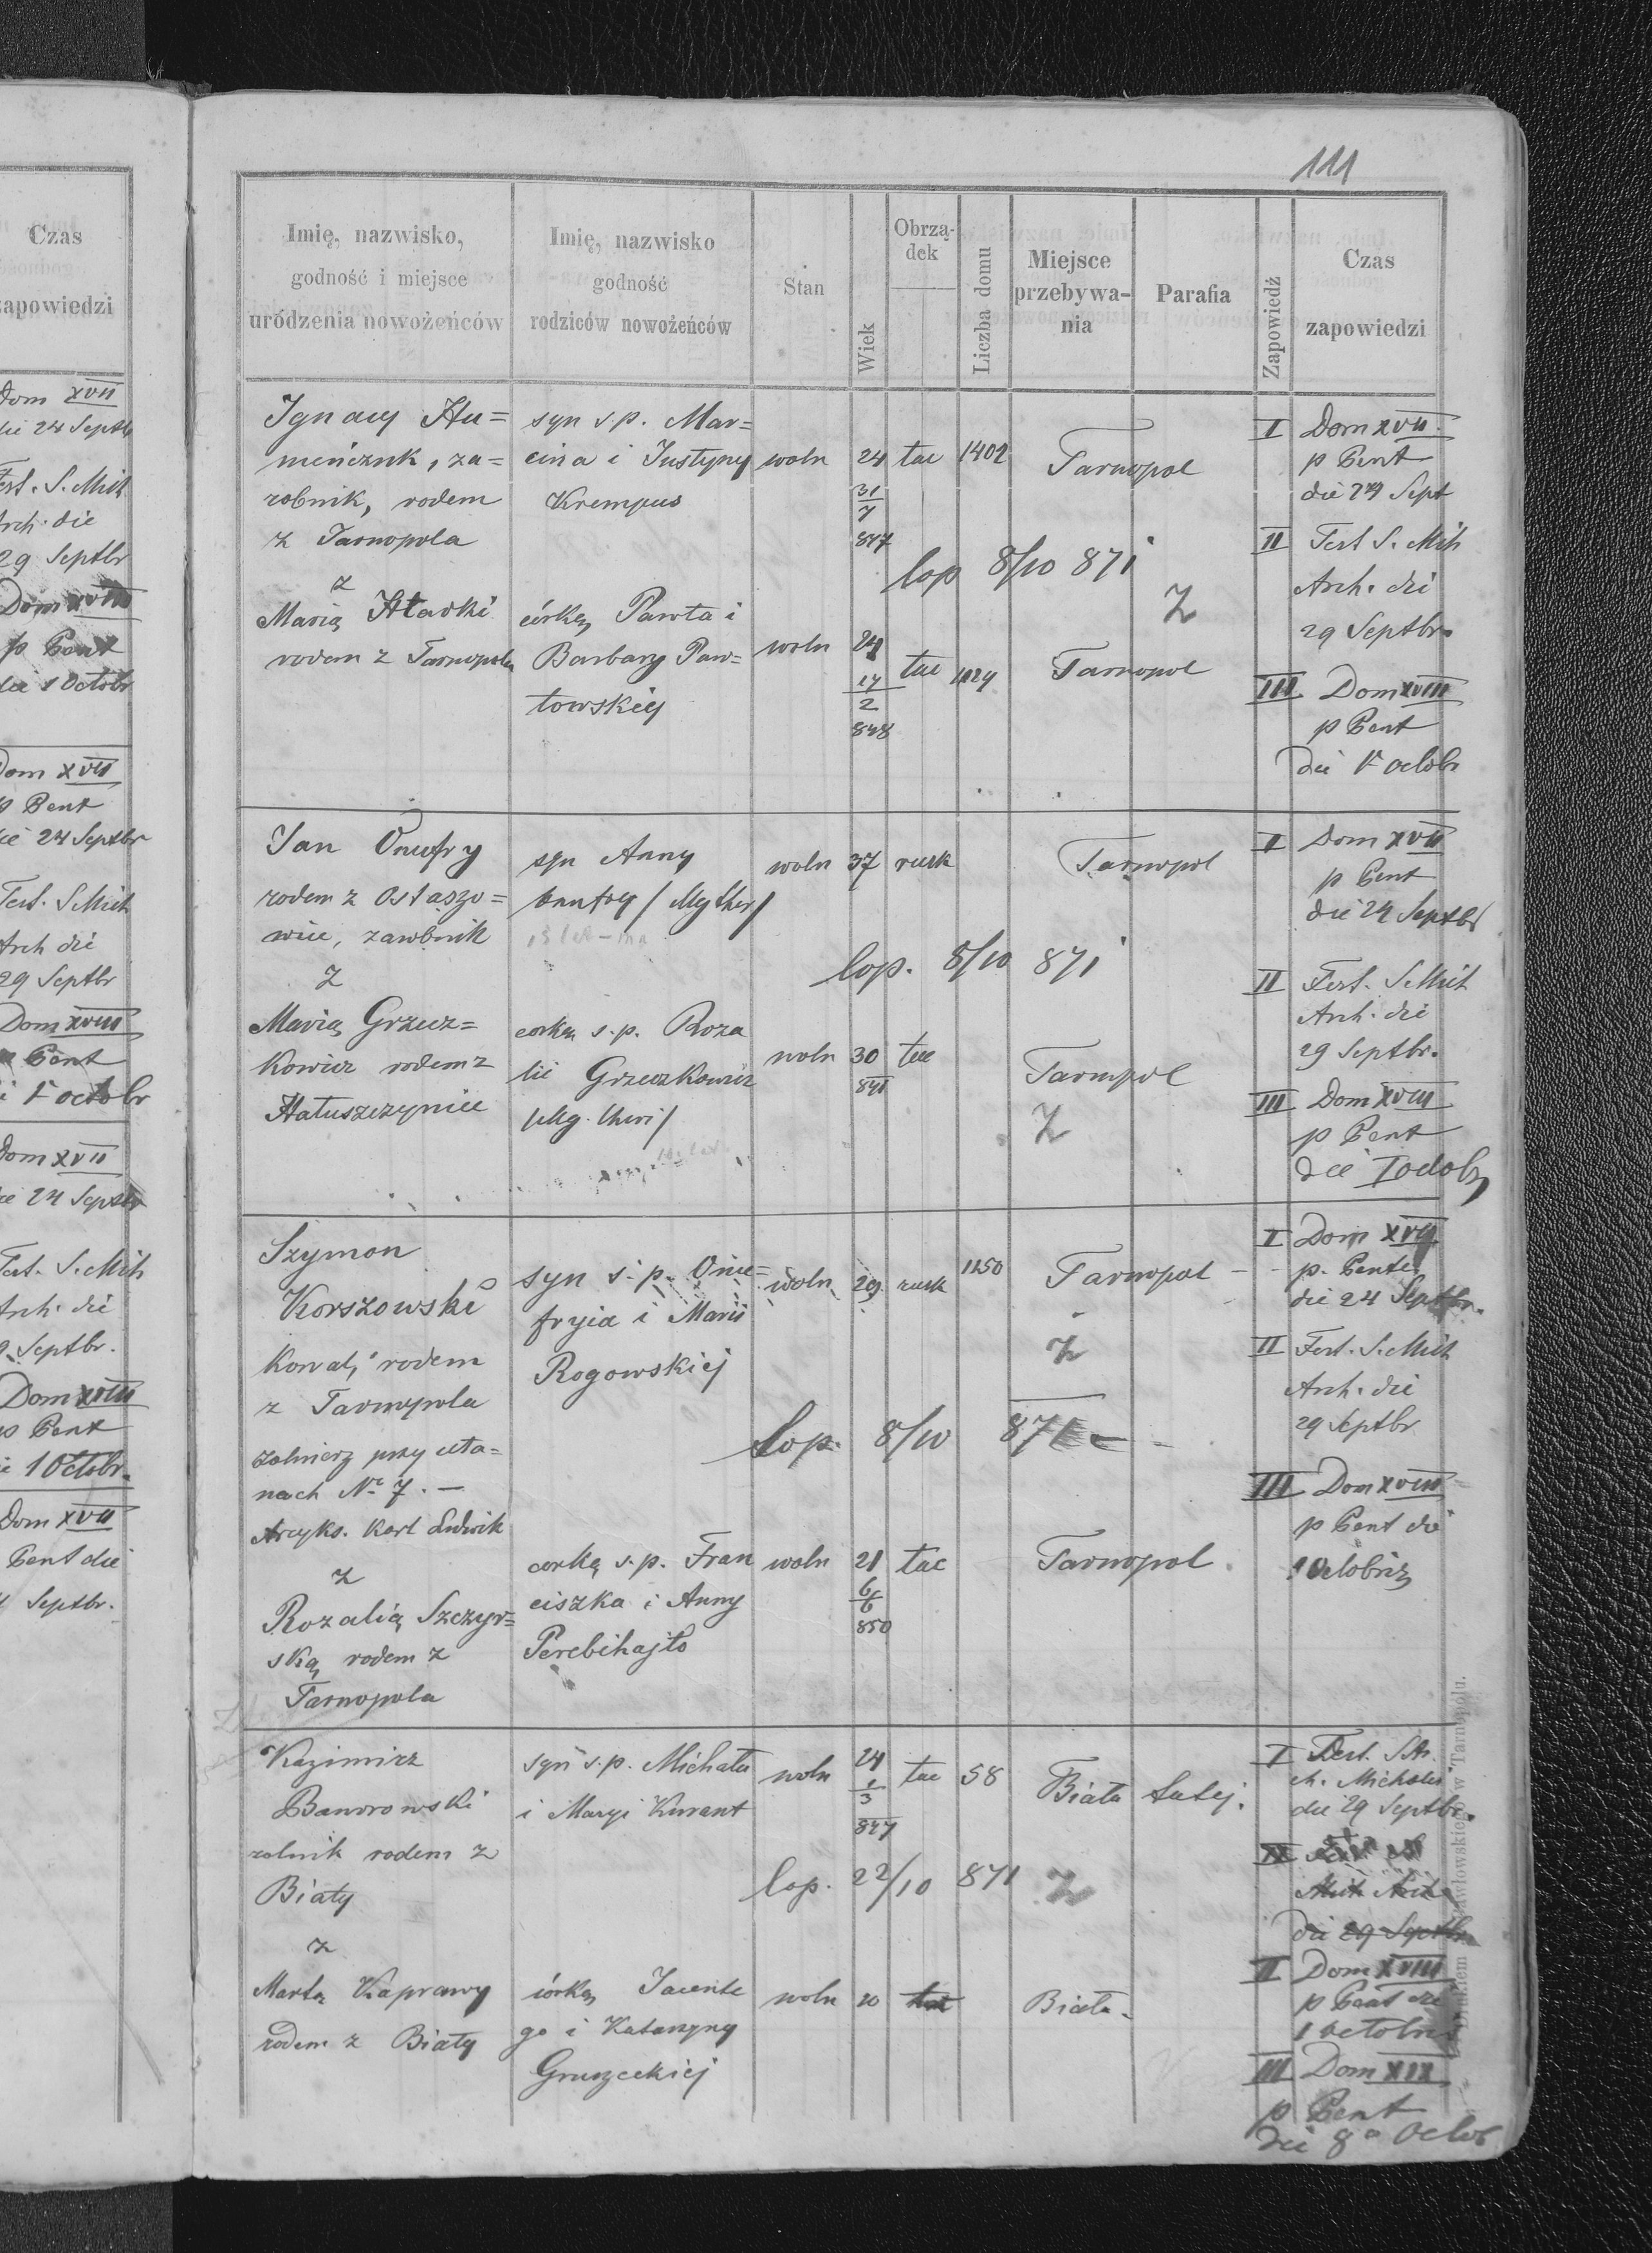 111
Czas
zapowiedzi
Dom XVII
die 24 Septbr
Fest. S. Mich
Arch. die
29 Septbr
Dom XVIII
p Pent
die 1 Octobr
Dom XVII
p Pent
die 24 Septbr
Fest. S Mich
Arch die
29 Septbr
Dom XVIII
p Pent
Octobr
Dom XVII
die 24 Septbr
Fest. S. Mich
Arch. die
29 Septbr.
Dom XVIII
p Pent
die 1 Octobr.
Dom XVII
p Pent die
Septbr.
Imię, nazwisko,
godność i miejsce
urodzenia nowożeńców
Imię, nazwisko
godność
rodziców nowożeńców
Stan
Wiek
Obrzą-
dek
Liczba domu
Miejsce
przebywa-
nia
Parafia
Zapowiedź
Czas
zapowiedzi
Ignacy Hu=
meńczuk, za=
robnik, rodem
z Tarnopola
z
Marią Hładki
rodem z Tarnopola
syn s.p. Mar=
cina i Justyny
Krempus
córką Pawła i
Barbary Paw=
łowskiej
woln 24 łac 1402 Tarnopol
31
7
847
lop 8/10 871
Z
woln 24 łac 1124 Tarnopol
17
2
848
I Dom XVII.
p Pent
die 24 Sept
II Fest S. Mich
Arch. die
29 Septbr.
III Dom XVIII
p Pent
die 1 octobr
Jan Onufry
rodem z Ostaszo=
wiec, zarobnik
z
Marią Grzecz=
kowicz rodem z
Hałuszczyniec
syn Anny
Onufry
corką s.p. Roza
lii Grzeczkowicz
woln 37 rusk Tarnopol
lop. 8/10 871
woln 30 łac Tarnopol
841
Z
I Dom XVII
p Pent
die 24 Septbr
II Fest. S Mich
Arch. die
29 Septbr.
III Dom XVIII
p Pent
die I octobr
Szymon
Korszowski
Kowal, rodem
z Tarnopola
żołnierz przy uła=
nach Nr 7. —
Arcyks. Karl Ludwik
z
Rozalią Szczyr=
ską rodem z
Tarnopola
syn s.p. Onu=
fryia i Marii
Rogowskiej
corką s.p. Fran
ciszka i Anny
Perebihajło
woln 29 rusk 1250 Tarnopol
Z
Lop. 8/10 871
woln 21 łac Tarnopol
6
6
850
I Dom XVII
p. Pente
die 24 Septbr.
II Fest. S. Mich
Arch. die
29 Septbr
III Dom XVIII
p Pent die
1 Octobris
Kazimirz
Bandrowski
rolnik rodem z
Biały
z
Martą Kaprawy
rodem z Biały
syn s.p. Michała
i Maryi Kurant
córką Jacente
go i Katarzyny
Gruszeckiej
woln 24 łac 58 Biała tutej.
1
3
847
lop. 22/10 871 Z
woln 20 Biała
I Fest. S. Ar.
ch. Michaeli
die 29 Septbr.
die 29 Septbr
II Dom XVIII
p Pent die
1 octobris
III Dom XIX
p Pent
die 8a Octob
Drukiem Pawłowskiego w Tarnopolu.